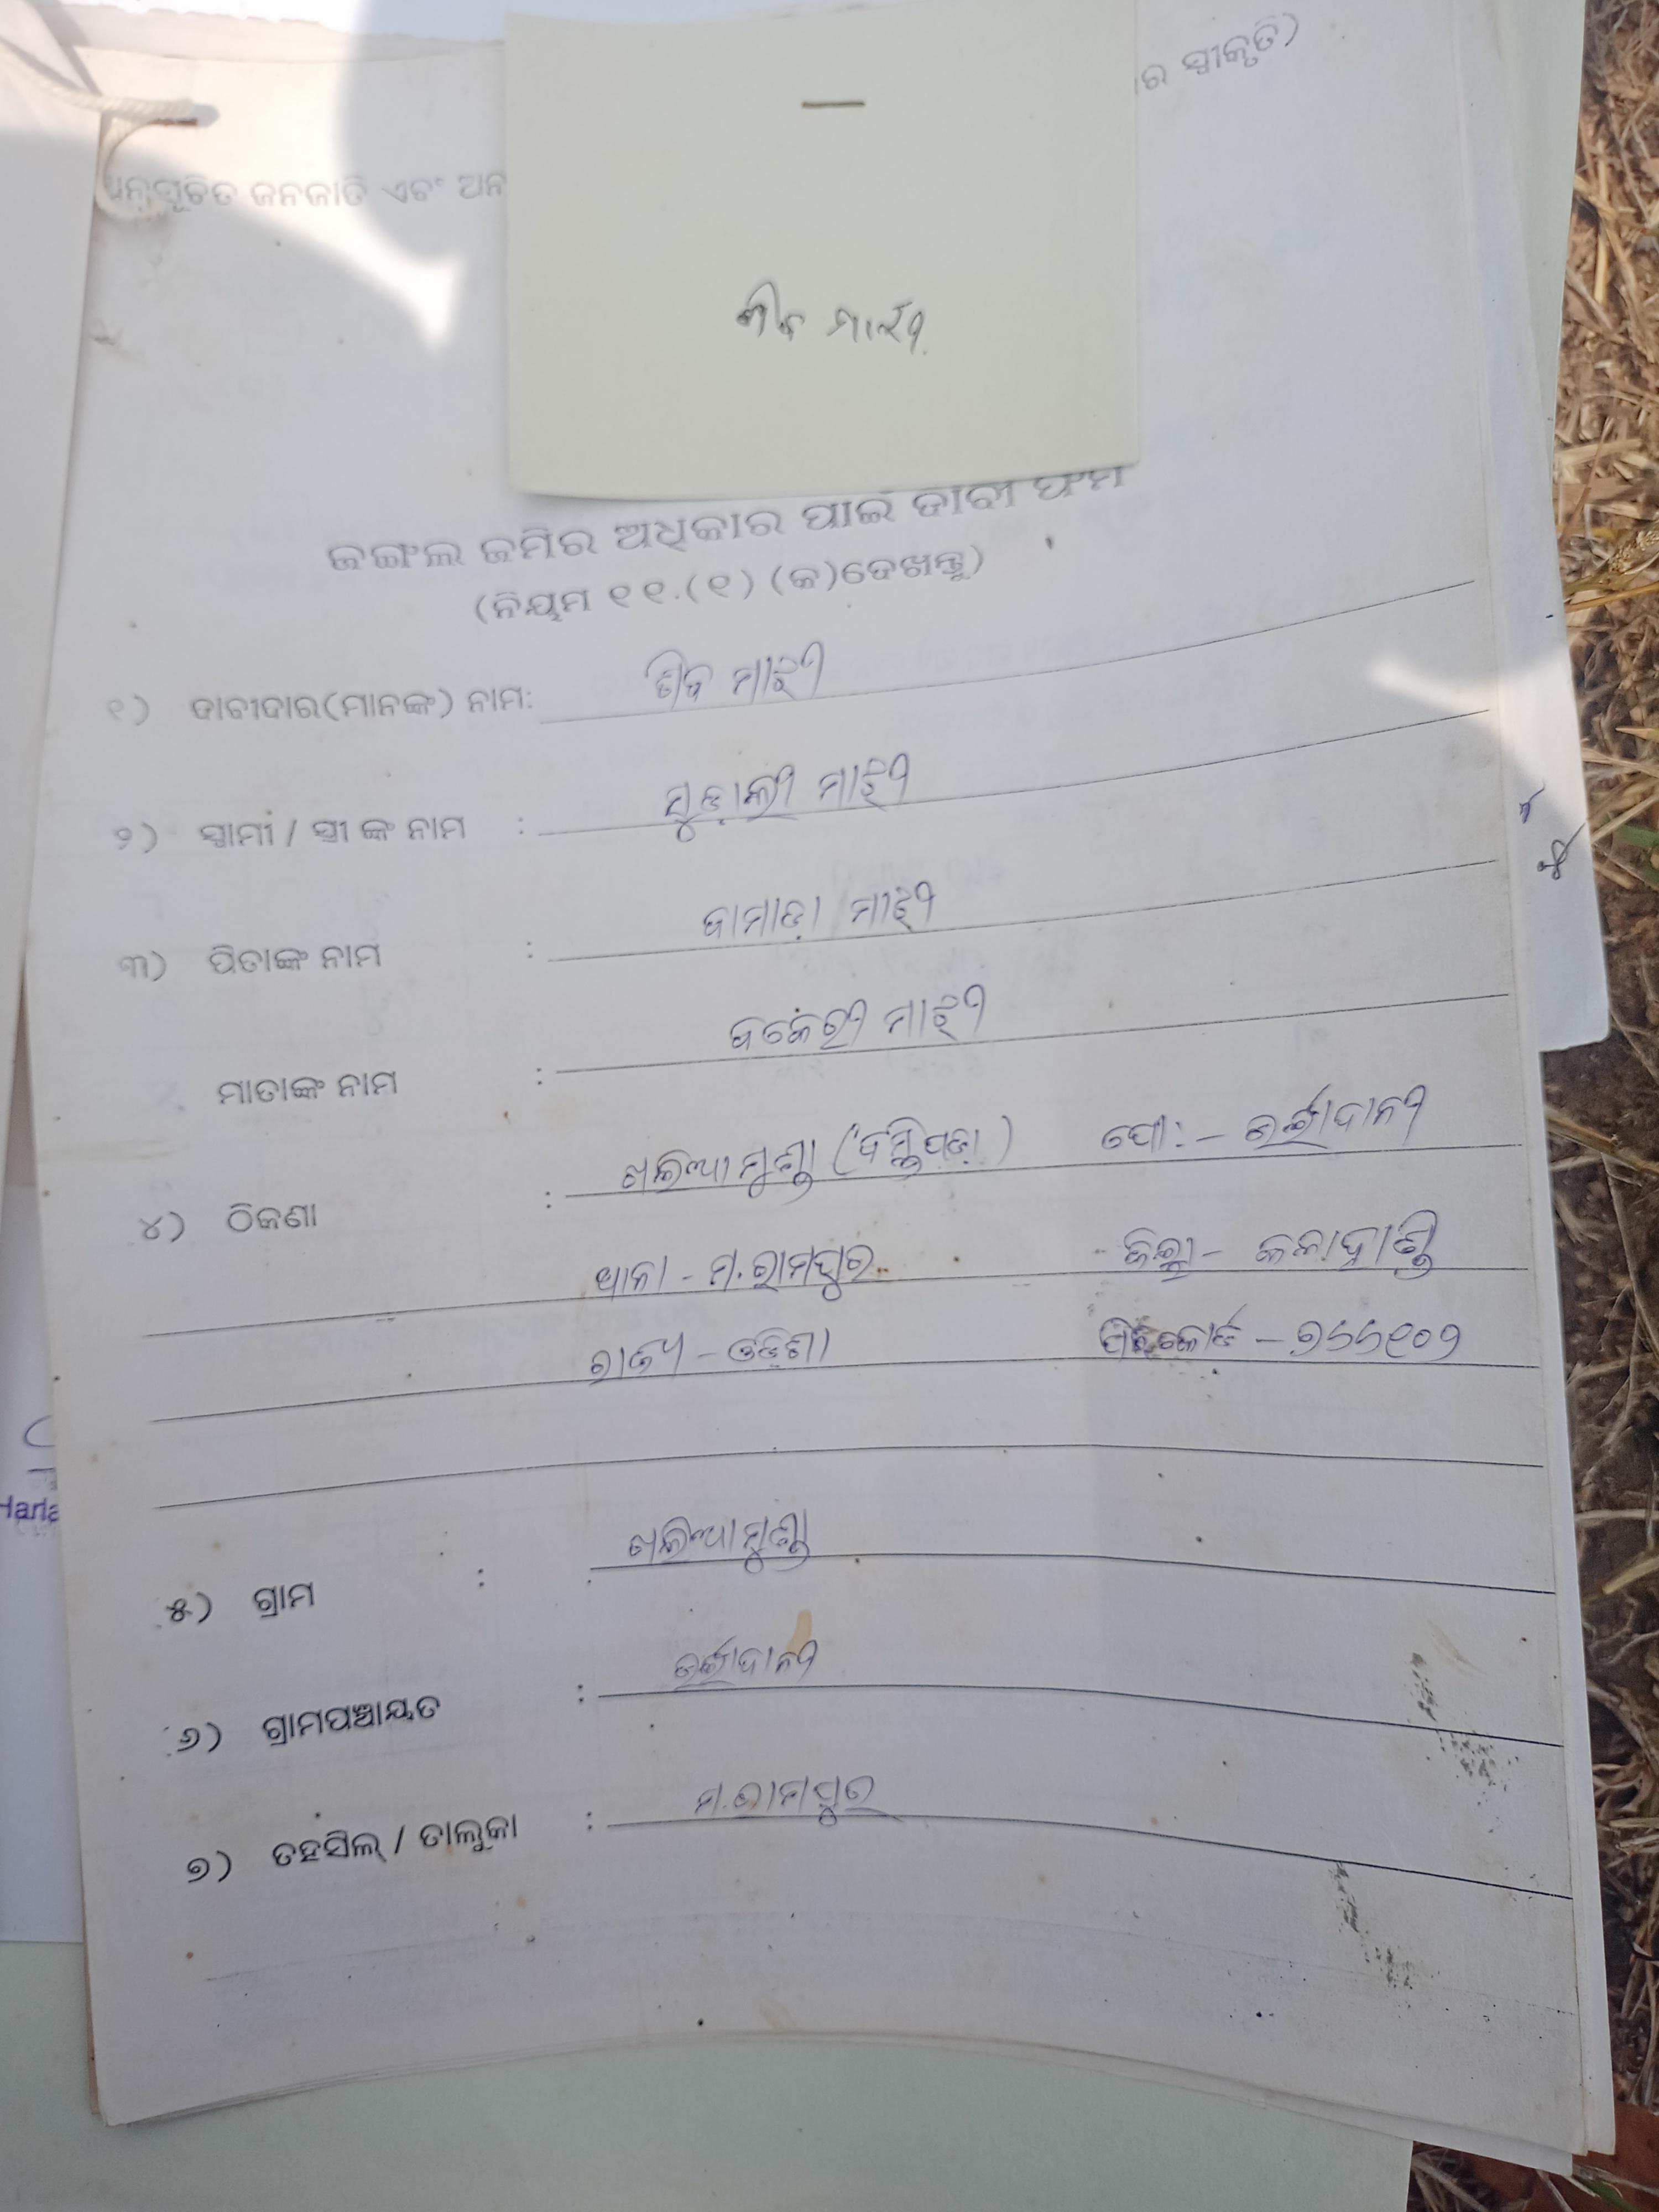 ର ସ୍ୱୀକୃତି)
ଅନୁସୂଚିତ ଜନଜାତି ଏବଂ ଅନ
ଜଙ୍ଗଲ ଜମିର ଅଧିକାର ପାଇଁ ଦାବୀ ଫର୍ମ
(ନିୟମ ୧୧.(୧) (କ)ଦେଖନ୍ତୁ)
୧) ଦାବୀଦାର(ମାନଙ୍କ) ନାମ: ଶିବ ମାଝୀ
୨) ସ୍ୱାମୀ / ସ୍ତ୍ରୀ ଙ୍କ ନାମ : ମୁଡ଼ାଲୀ ମାଝୀ
୩) ପିତାଙ୍କ ନାମ : ଦାମାଡ଼ା ମାଝୀ
ମାତାଙ୍କ ନାମ : ମାଝୀ
୪) ଠିକଣା : ଖଲିଆମୁଣ୍ଡା (ବସ୍ତିପଡ଼ା) ପୋ:-
ଥାନା - ମ.ରାମପୁର ଜିଲ୍ଲା - କଳାହାଣ୍ଡି
ରାଜ୍ୟ - ଓଡ଼ିଶା ପିନ୍‌କୋଡ - ୭୬୬୧୦୨
୫) ଗ୍ରାମ : ଖଲିଆମୁଣ୍ଡା
୬) ଗ୍ରାମପଞ୍ଚାୟତ :
୭) ତହସିଲ୍ / ତାଲୁକା : ମ.ରାମପୁର